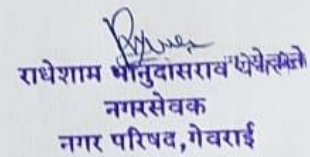 राधेशाम भानुदासराव
नगरसेवक
नगर परिषद,गेवराई